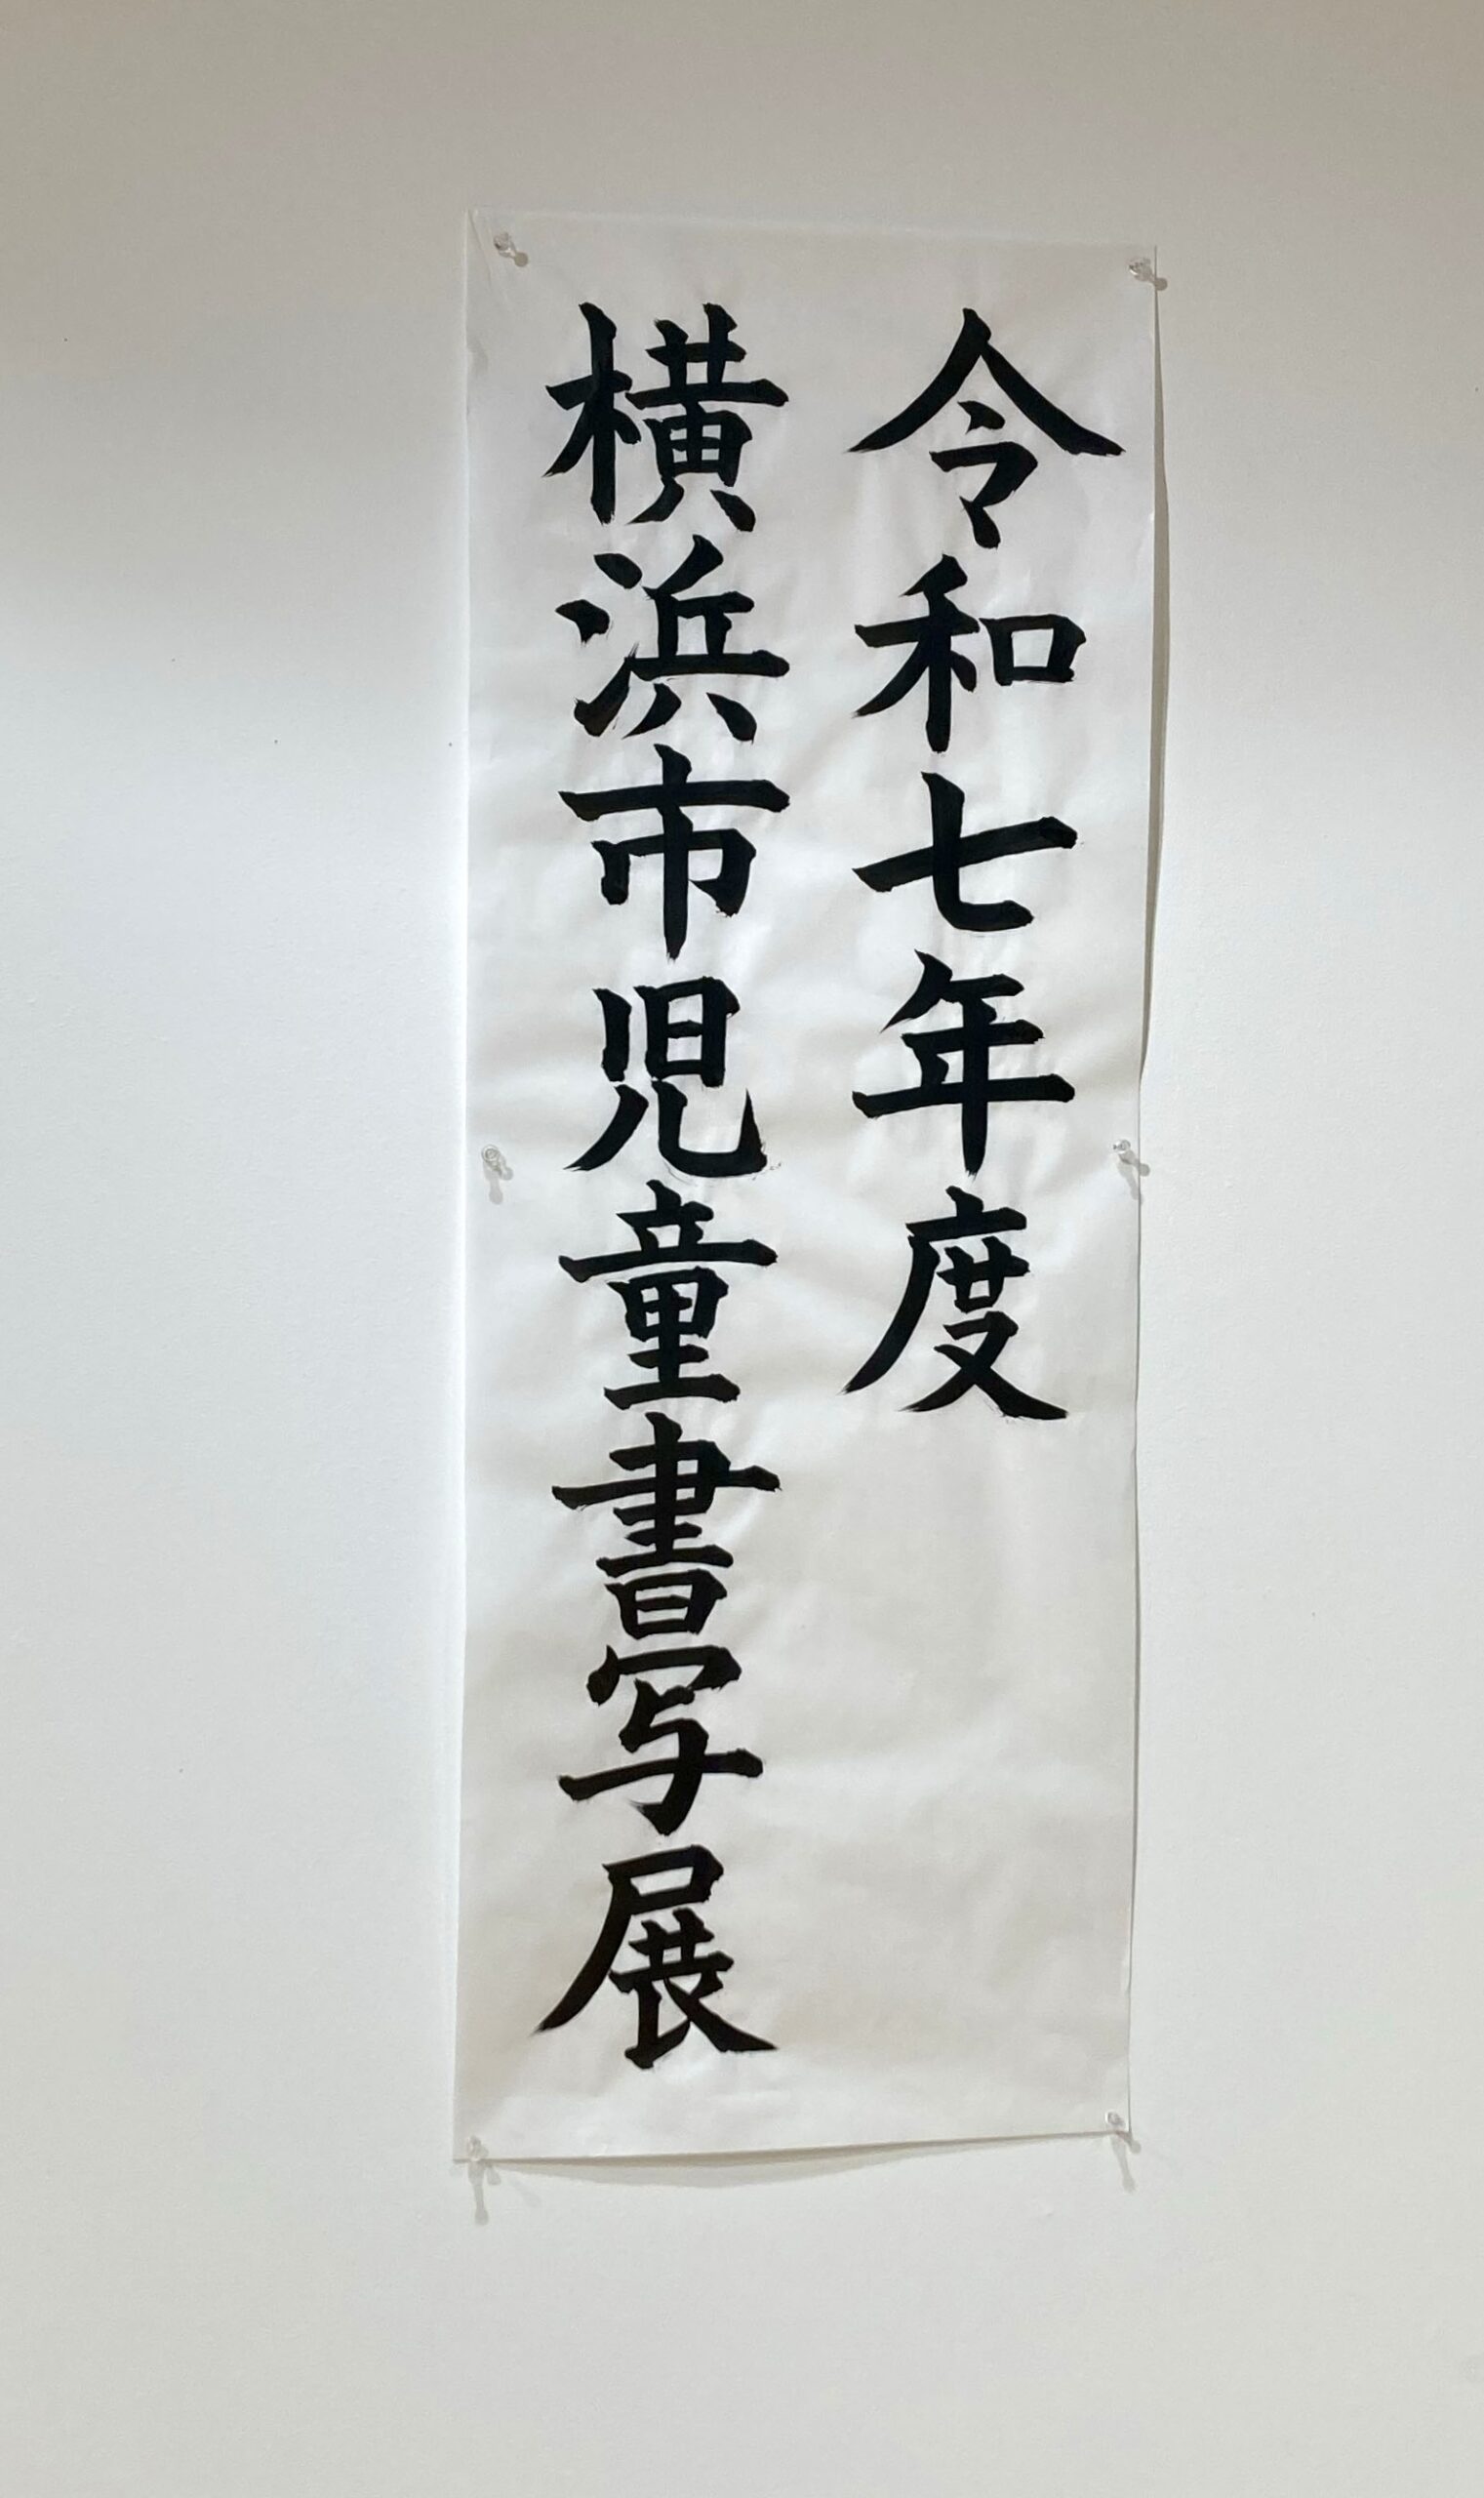 令和七年度
横浜市児童書写展